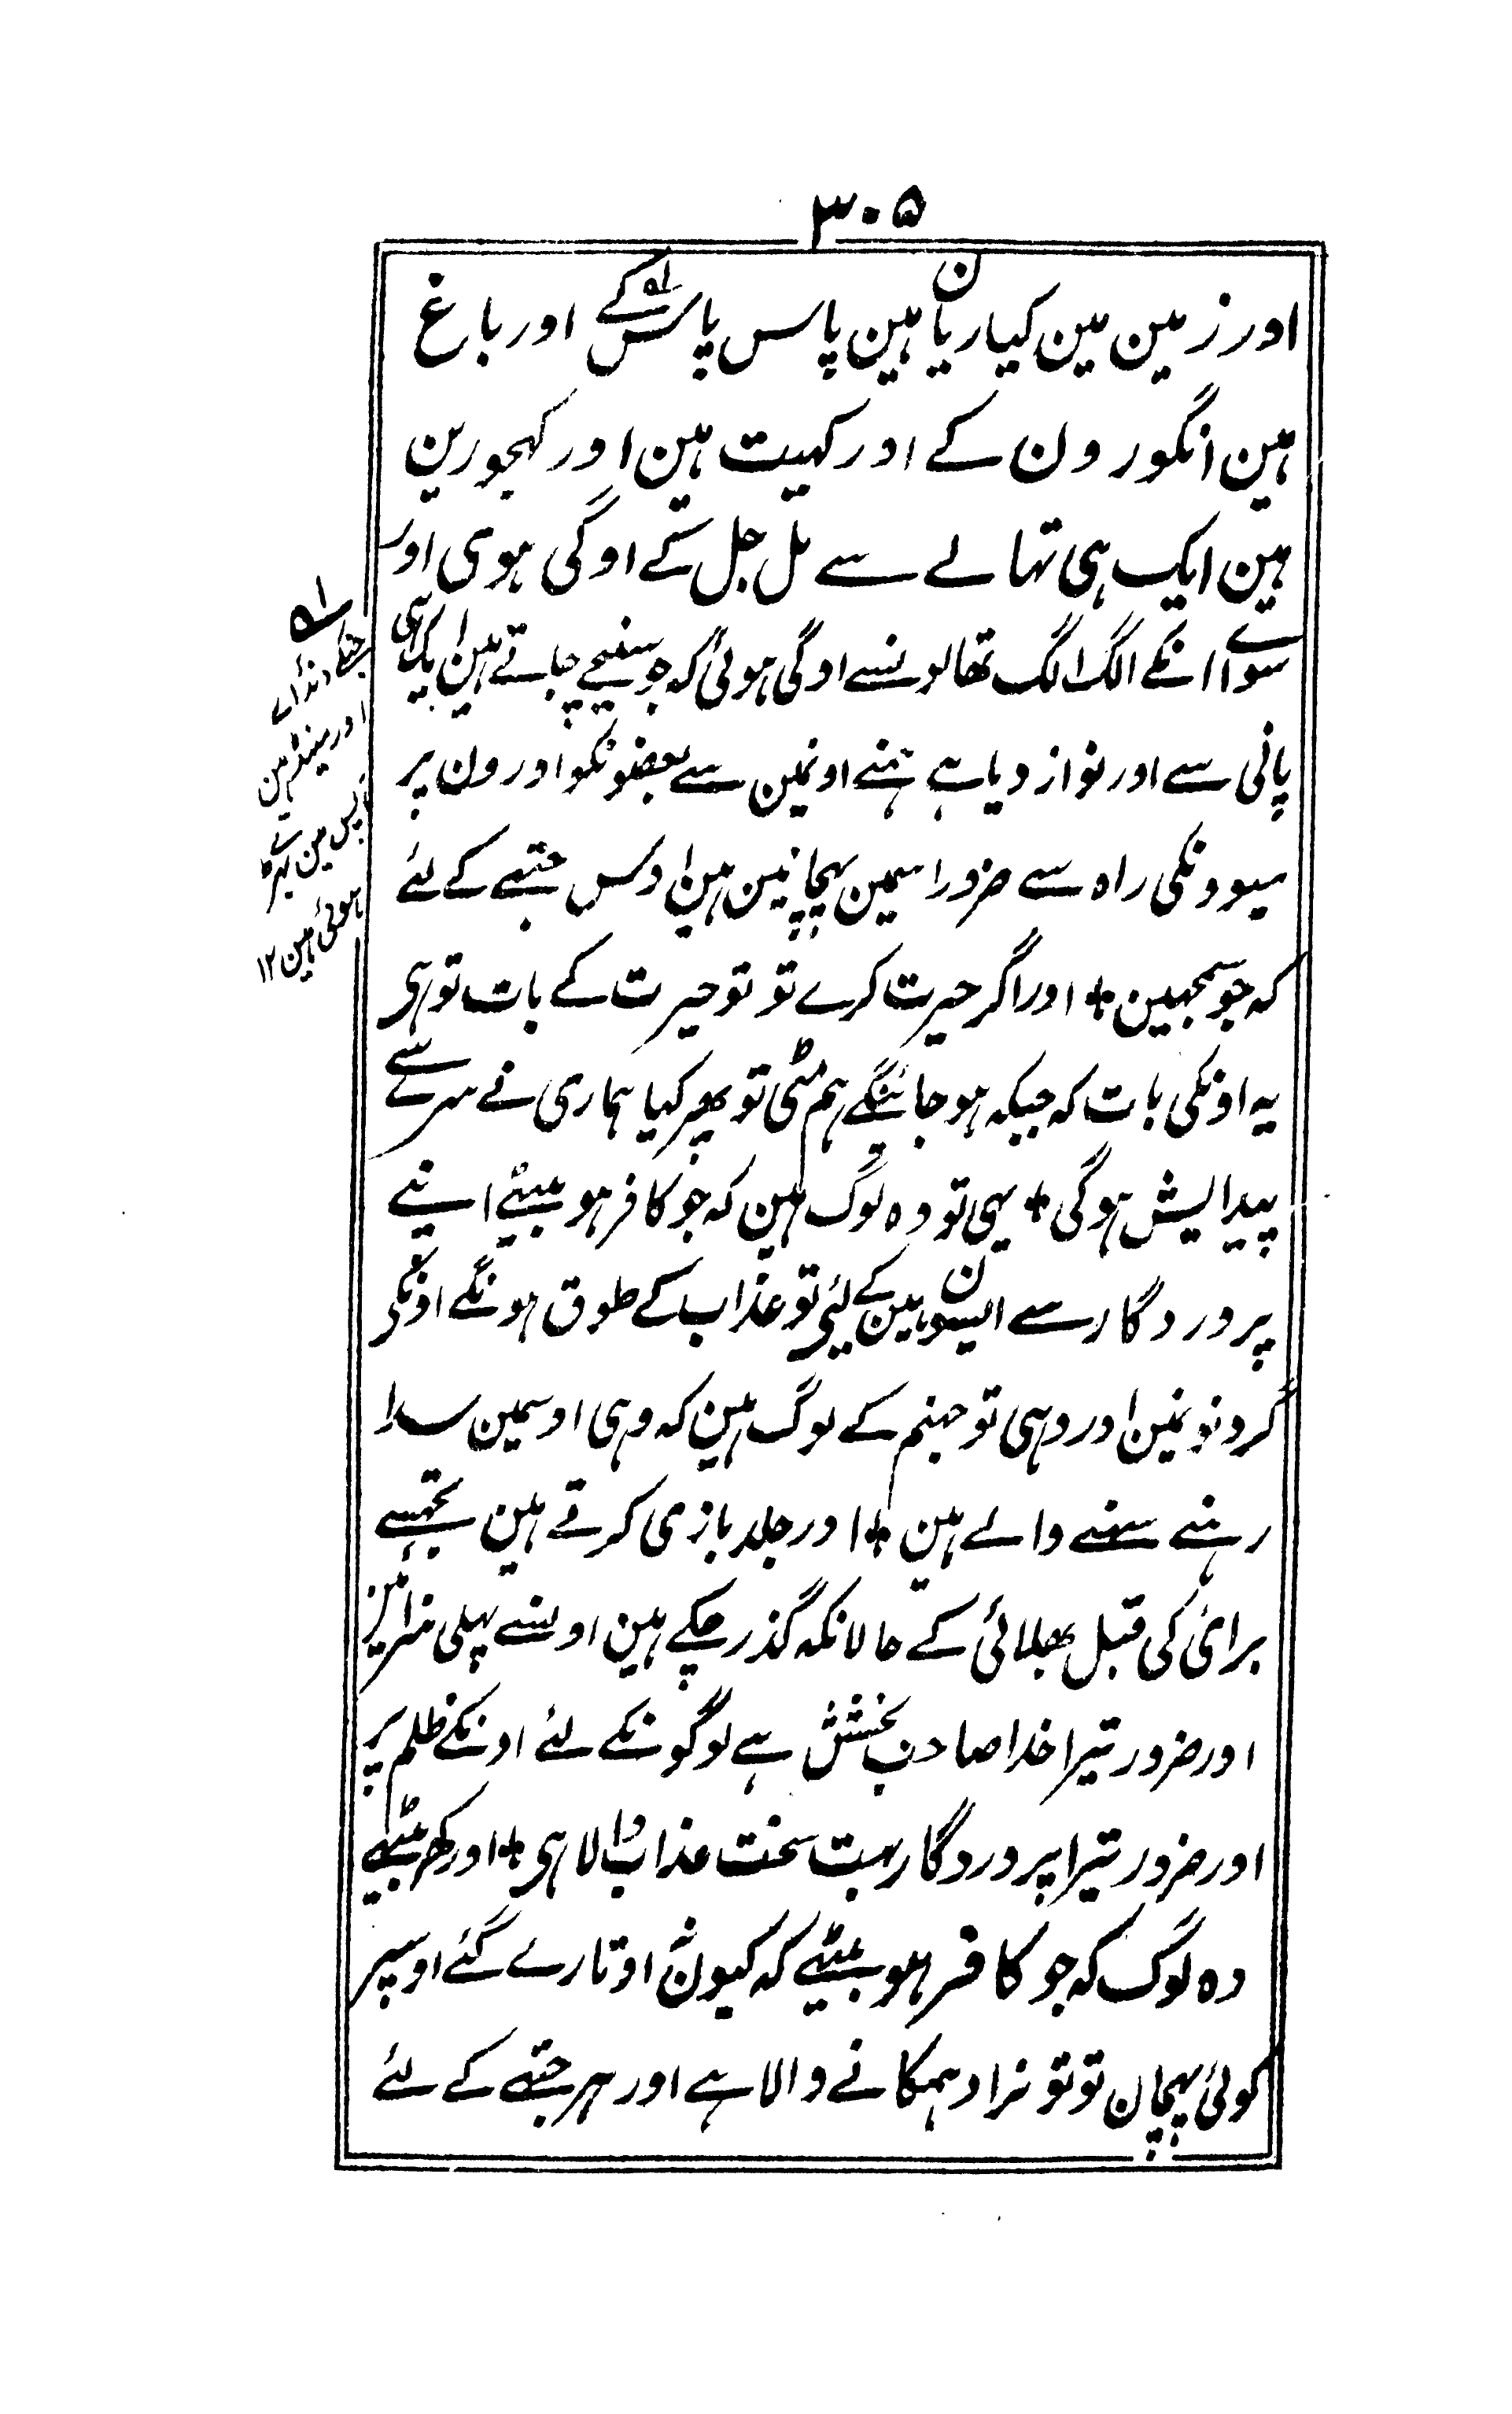 ۳۰۵
اور زمین مین کیاریان ہین پاس پاس کے اور باغ
ہین انگورون کے اور کہیت ہین اور کہجورین
ہین ایک ہی تہالے سے مل جل کے اوگی ہوی اور
سواے انکے الگ الگ تھالونسے اوگی ہوئی کہ جو سنیچے جاتے ہین ایک ہی
پانی سے اور نواز دیا ہے ہمنے اونمین سے بعضونکو اورون پر
میوونکی راہ سے ضرور اسمین پہچانین ہین اوس جتہے کے لئے
کہ جو سمجہین + اور اگر حیرت کرے تو تو حیرت کے بات تو ہی
یہ اونکی بات کہ جبکہ ہو جائینگے ہم مٹی تو پھر کیا ہماری نے سر سے
پیدایش ہوگی + یہی تو وہ لوگ ہین کہ جو کافر ہو بیٹے اپنے
پروردگار سے ایسون ہین کے لئے تو عذاب کے طوق ہونگے اونکی
گردنونمین اور وہی تو جہنم کے لوگ ہین کہ وہی اوسمین سدا
رہنے سہنے والے ہین + اور جلد بازی کرتے ہین تجہسے
برائ کی قبل بھلائی کے حالانکہ گذر چکے ہین اونسے پہلی سزائین
اور ضرور تیرا خدا صاحب بخشش ہے لوگونکے لئے اونکے ظلم پر
اور ضرور تیرا پروردگار بہت سخت عذاب والا ہی + اور کہ بیٹہے
وہ لوگ کہ جو کافر ہو بیٹہے کہ کیون نہ اوتارے گئے اوسپر
کوئی پہچان تو تو نرا دہمکانے والا ہے اور ہر جتہے کے لئے
لہ
جنکے ڈنڈے
اور مینڈہین
آپس مین
ہوئی ہین ۱۲